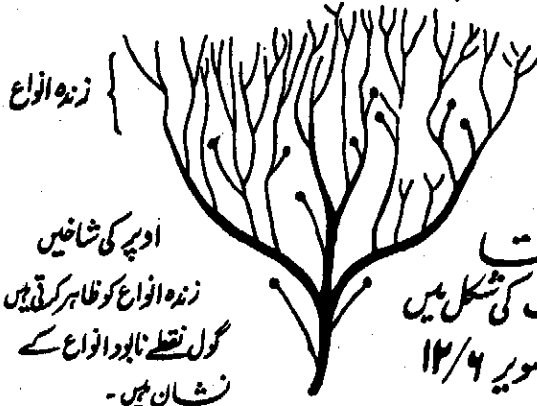 زندہ انواع
اوپر کی شاخیں
زندہ انواع کو ظاہر کرتی ہیں
گول نقطے نابود انواع کے
نشان ہیں۔
کی شکل میں
۱۲/۶